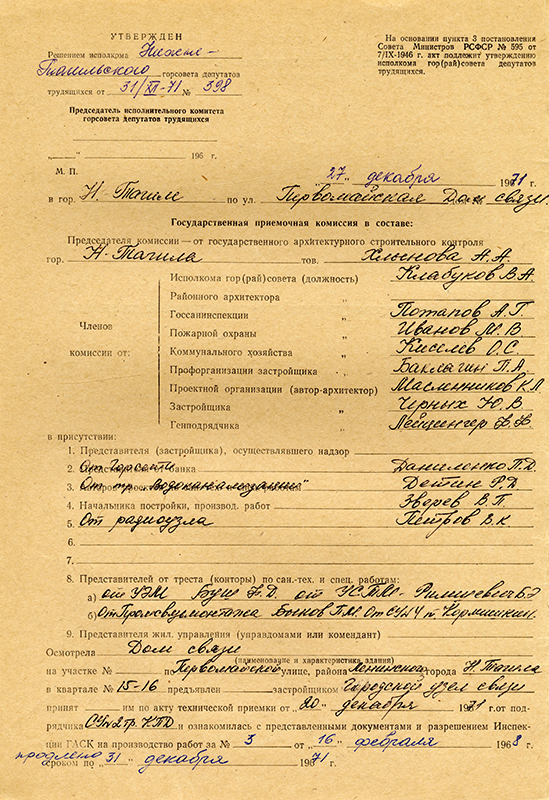 УТВЕРЖДЕН
Решением исполкома Нижне-
Тагильского горсовета депутатов
трудящихся от 31/XII-71 № 598
Председатель исполнительного комитета
горсовета депутатов трудящихся
„ “ 196 г.
М. П.
На основании пункта 3 постановления
Совета Министров РСФСР № 595 от
7/IX-1946 г. акт подлежит утверждению
исполкома гор(рай)совета депутатов
трудящихся.
„27“ декабря 1971 г.
в гор. Н. Тагиле по ул. Первомайская Дом связи.
Государственная приемочная комиссия в составе:
Председателя комиссии — от государственного архитектурного строительного контроля
гор. Н-Тагила тов. А. А.
Членов
комиссии от:
Исполкома гор(рай)совета (должность) Клабуков В. А.
Районного архитектора „
Госсанинспекции „ Потапов А. Г.
Пожарной охраны „ Иванов М. В
Коммунального хозяйства „ Киселев О. С.
Профорганизации застройщика „ Баклагин П. А.
Проектной организации (автор-архитектор) Масленников К. П
Застройщика „ Черных Ю. В
Генподрядчика „
в присутствии:
1. Представителя (застройщика), осуществлявшего надзор
2. От Горсети банка Даниленко П. Д.
3. От тр. Водоканализации" Детин Р. Д
4. Начальника постройки, производ. работ Зверев В. П.
5. От радиоузла Петров В. К
6.
7.
8. Представителей от треста (конторы) по сан.-тех. и спец. работам:
а) от УЭМ Буш Г. Д. от УСТМ-
б) От Промсвязьмонтажа Быков П. М.
9. Представителя жил. управления (управдомами или комендант)
Осмотрела Дом связи
(наименование и характеристика здания)
на участке № по Первомайской улице, района Ленинского города Н. Тагила
в квартале № 15-16 предъявлен застройщиком Городской узел связи
принят им по акту технической приемки от „20“ декабря 1971 г. от под-
рядчика и ознакомилась с представленными документами и разрешением Инспек-
ции ГАСК на производство работ за № 3 от „16“ февраля 1968 г.
продлено
сроком по „31“ декабря 1971 г.